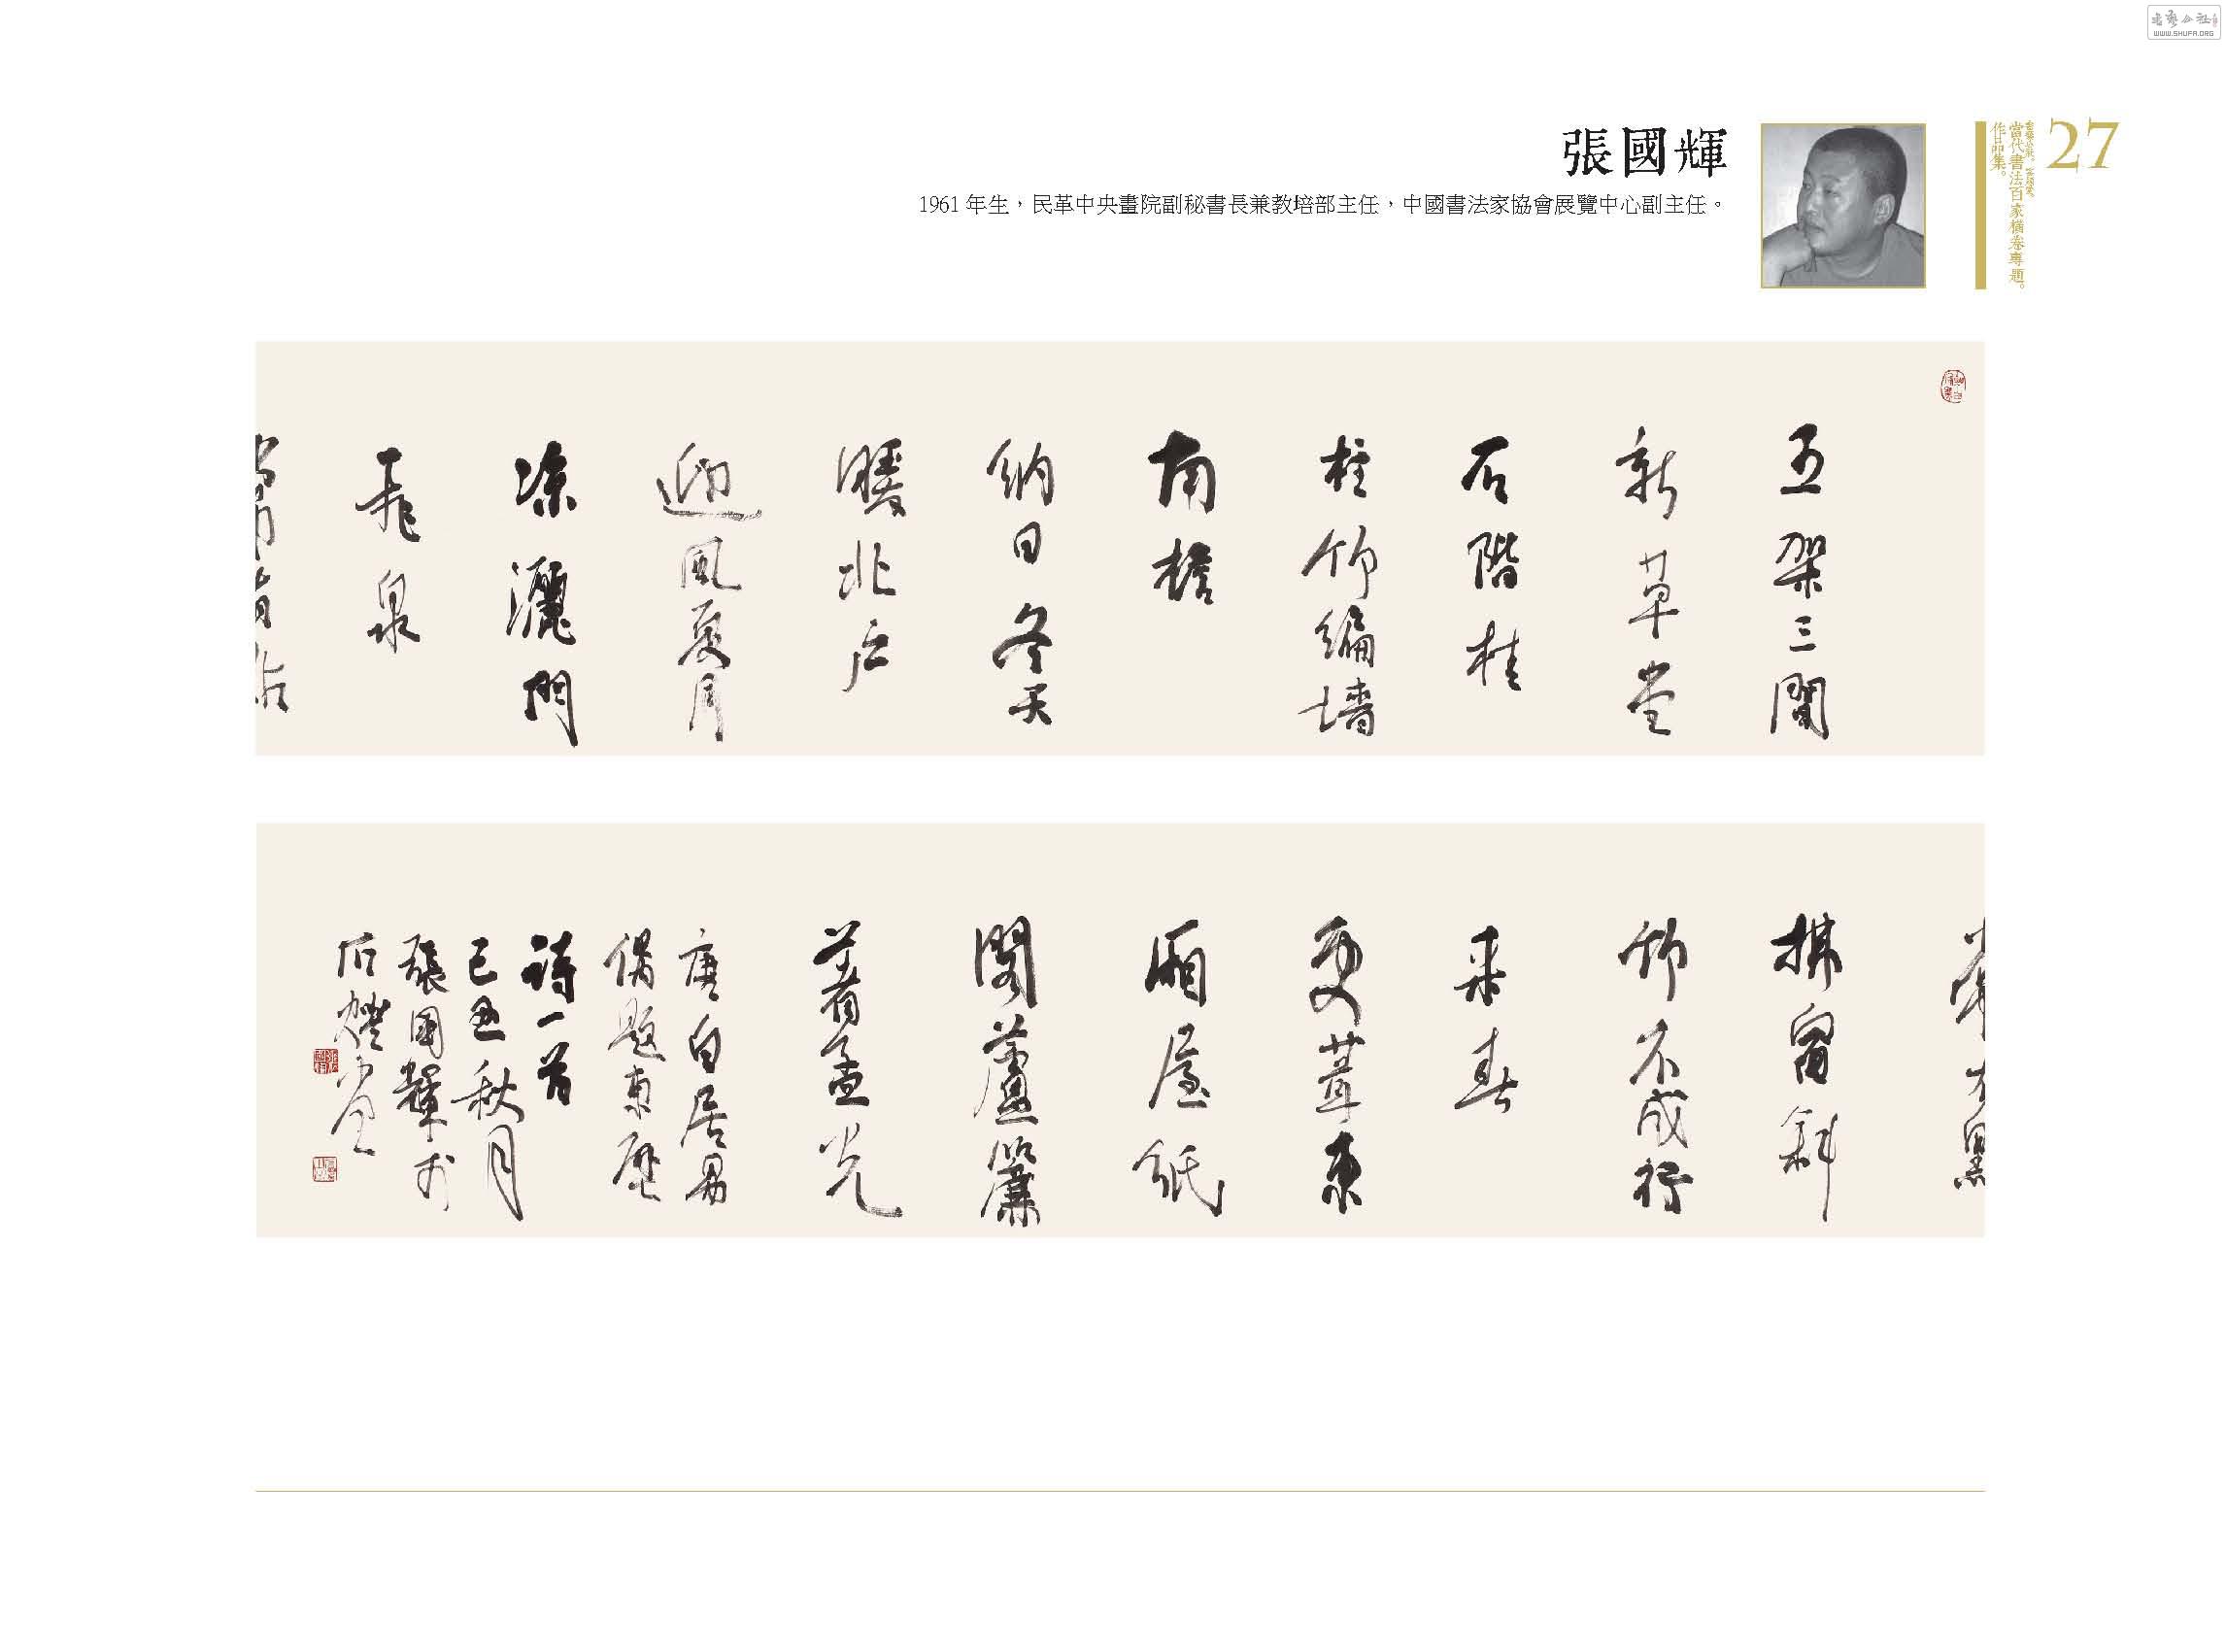 書藝公社
WWW.SHUFA.ORG
27
當代書法百家橫卷專題。
作品集。
張國輝
1961 年生，民革中央畫院副秘書長兼教培部主任，中國書法家協會展覽中心副主任。
五架三間
新草堂
石階桂
柱竹編墻
南檐
納日冬天
暖北戶
迎風夏月
涼灑門
飛泉
拂窗斜
竹不成行
來春
更葺東
廂屋紙
閣蘆簾
著孟光
唐白居易
偶題東壁
詩一首
己丑秋月
張國輝於
石